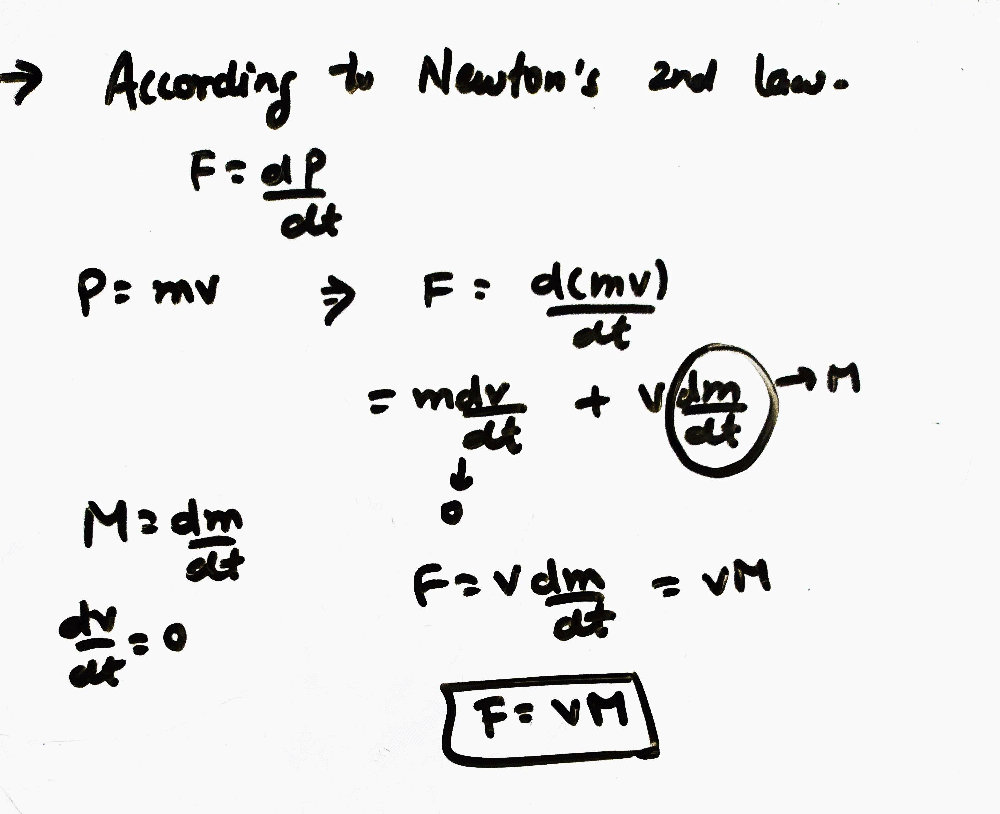 → According to Newton's 2nd law.
F = dP/dt
P = mv ⇒ F = d(mv)/dt
= m dv/dt + v dm/dt → M
↓
0
M = dm/dt
F = v dm/dt = vM
dv/dt = 0
F = vM